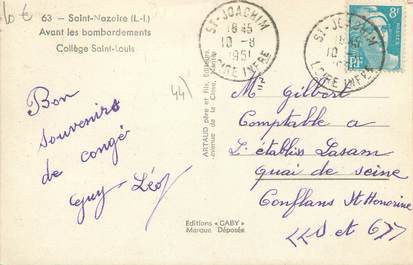 10 €
63 — Saint-Nazaire (L.-I.)
Avant les bombardements
Collège Saint-Louis
44)
Bon
souvenirs
de congé
Guy - Léo
ST-JOACHIM
18 45
10 - 8
1951
LOIRE INFRE
ST-JOACHIM
18
10
LOIRE INFRE
8F
RF
ARTAUD père et fils, Editeurs
avenue de la Close, Nantes
Editions "GABY"
Marque Déposée
M. Gilbert
Comptable a
L. établiss Lasam
quai de seine
Conflans St Honorine
S et O